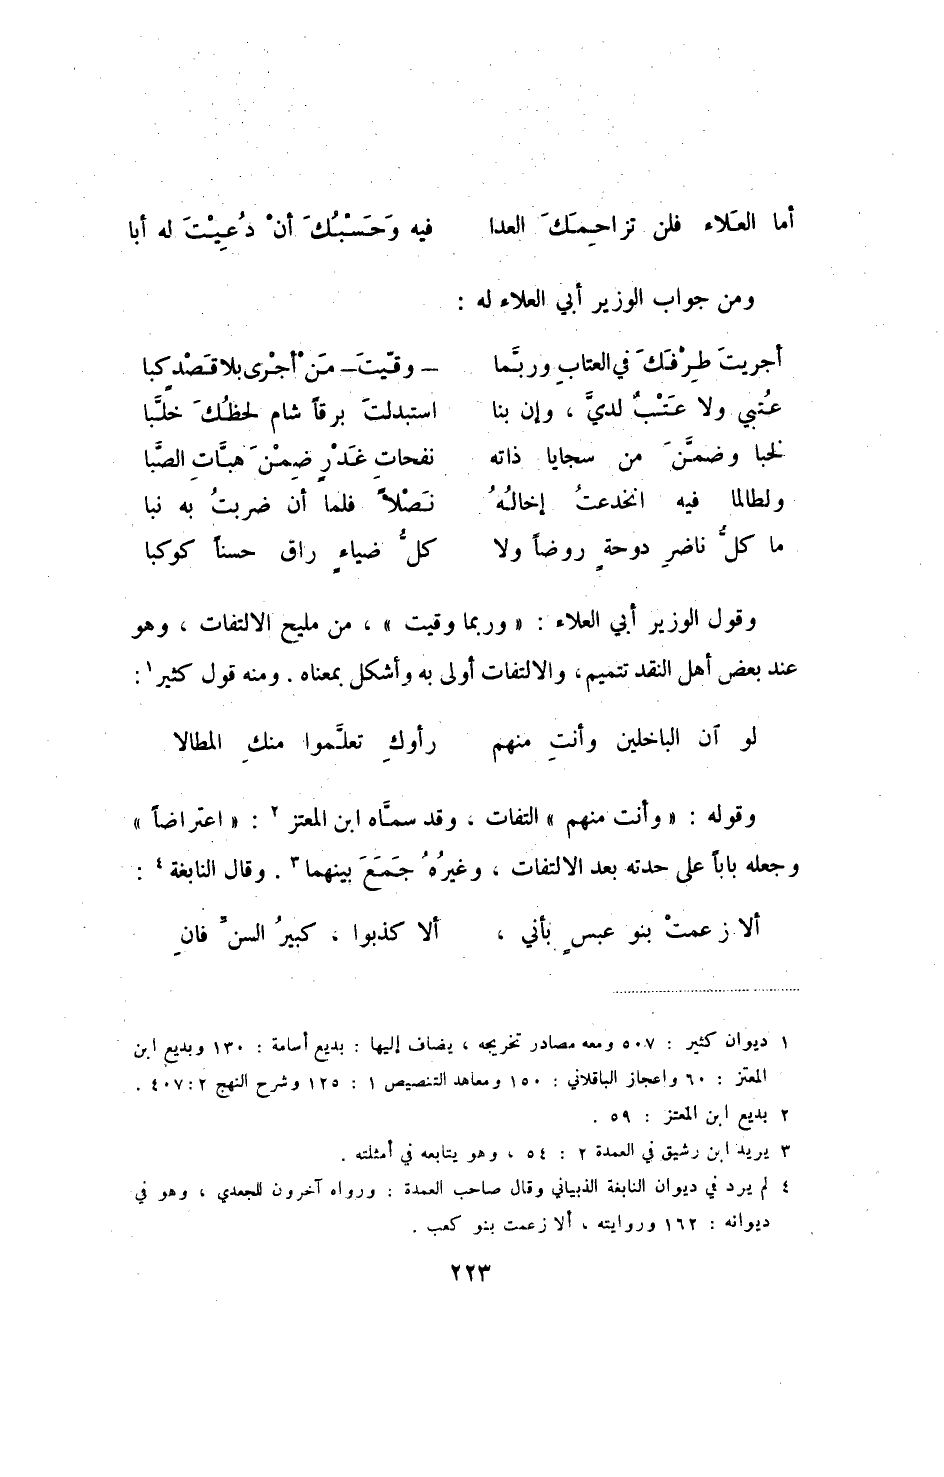 أما العَلاء فلن تزاحِمَكَ العدا فيه وَحَسْبُكَ أنْ دُعِيْتَ له أبا
ومن جواب الوزير أبي العلاء له :
أجريتَ طِرْفَكَ في العتابِ وربَّما – وقّيتَ – مَنْ أجْرى بلا قَصْدٍ كبا
عُتبي ولا عَتْبٌ لديَّ ، وإن بنا استبدلتَ برقاً شام لحظُكَ خلَّبا
لخبا وضمنَّ من سجايا ذاته نفحاتِ غَدْرٍ ضِمْنَ هبَّاتِ الصَّبا
ولطالما فيه انخدعتُ إخالُهُ نَصْلاً فلما أن ضربتُ به نبا
ما كلُّ ناضرِ دوحةٍ روضاً ولا كلُّ ضياءٍ راق حسناً كوكبا
وقول الوزير أبي العلاء : « وربما وقيت » ، من مليح الالتفات ، وهو
عند بعض أهل النقد تتميم ، والالتفات أولى به وأشكل بمعناه . ومنه قول كثير ١ :
لو آن الباخلين وأنتِ منهم رأوكِ تعلَّموا منكِ المطالا
وقوله : « وأنت منهم » التفات ، وقد سمَّاه ابن المعتز ٢ : « اعتراضاً »
وجعله باباً على حدته بعد الالتفات ، وغيرُهُ جَمَعَ بينهما ٣ . وقال النابغة ٤ :
ألا زعمتْ بنو عبسٍ بأني ، ألا كذبوا ، كبيرُ السنِّ فانِ
١ ديوان كثير : ٥٠٧ ومعه مصادر تخريجه ، يضاف إليها : بديع أسامة : ١٣٠ وبديع ابن
المعتز : ٦٠ واعجاز الباقلاني : ١٥٠ ومعاهد التنصيص ١ : ١٢٥ وشرح النهج ٢ : ٤٠٧ .
٢ بديع ابن المعتز : ٥٩ .
٣ يريد ابن رشيق في العمدة ٢ : ٥٤ ، وهو يتابعه في أمثلته .
٤ لم يرد في ديوان النابغة الذبياني وقال صاحب العمدة : ورواه آخرون للجعدي ، وهو في
ديوانه : ١٦٢ وروايته ، ألا زعمت بنو كعب .
٢٢٣